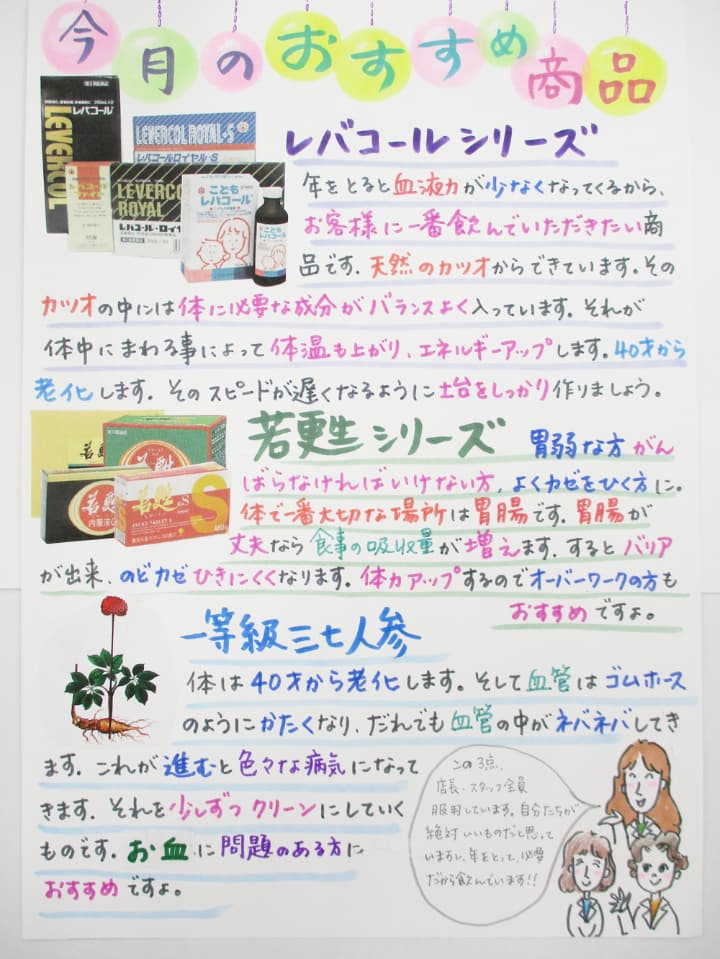 今月のおすすめ商品
LEVERCOL
レバコール
LEVERCOL ROYAL・S
レバコールロイヤル・S
LEVERCOL
ROYAL
レバコール・ロイ
こども
レバコール
こども
レバコール
レバコールシリーズ
年をとると血液力が少なくなってくるから、
お客様に一番飲んでいただきたい商
品です。天然のカツオからできています。その
カツオの中には体に必要な成分がバランスよく入っています。それが
体中にまわる事によって体温も上がり、エネルギーアップします。40才から
老化します。そのスピードが遅くなるように土台をしっかり作りましょう。
若甦
若甦
若甦S
S
若甦シリーズ 胃弱な方がん
ばらなければいけない方、よくカゼをひく方に。
体で一番大切な場所は胃腸です。胃腸が
丈夫なら食事の吸収量が増えます。するとバリア
が出来、のどカゼひきにくくなります。体力アップするのでオーバーワークの方も
おすすめですよ。
一等級三七人参
体は40才から老化します。そして血管はゴムホース
のようにかたくなり、だれでも血管の中がネバネバしてき
ます。これが進むと色々な病気になって
きます。それを少しずつクリーンにしていく
ものです。お血に問題のある方に
おすすめですよ。
この3点、
店長・スタッフ全員
服用しています。自分たちが
絶対いいものだと思って
いますし、年をとって、必要
だから飲んでいます!!